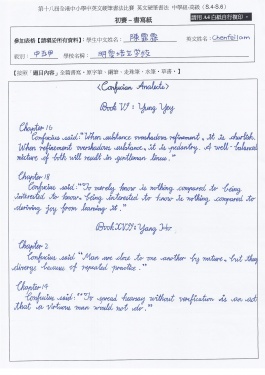 第十八屆全港中小學中英文硬筆書法比賽 英文硬筆書法 中學組-高級 (S.4-S.6)
初賽－書寫紙
請用A4白紙自行複印。
參加表格【請填妥所有資料】: 學生中文姓名: 陳霏霖 英文姓名: Chen Fei lam
級別: 中五甲 學校名稱:
【按照「題目內容」全篇書寫
<Confucian Analects>
Book VI: Yung Yey
Chapter 16
Confucius said: "When substance overshadows refinement, it is churlish.
When refinement overshadows substance, it is pedantry. A well-balanced
mixture of both will result in gentleman linea."
Chapter 18
Confucius said: "To merely know is nothing compared to being
interested to know. being interested to know is nothing compared to
deriving joy from learning it."
Book XVII: Yang Ho
Chapter 2
Confucius said "Man are close to one another by nature, but they
diverge because of repeated practice."
Chapter 14
Confucius said: "To spread hearsay without verification is an act
that a virtuous man would not do."